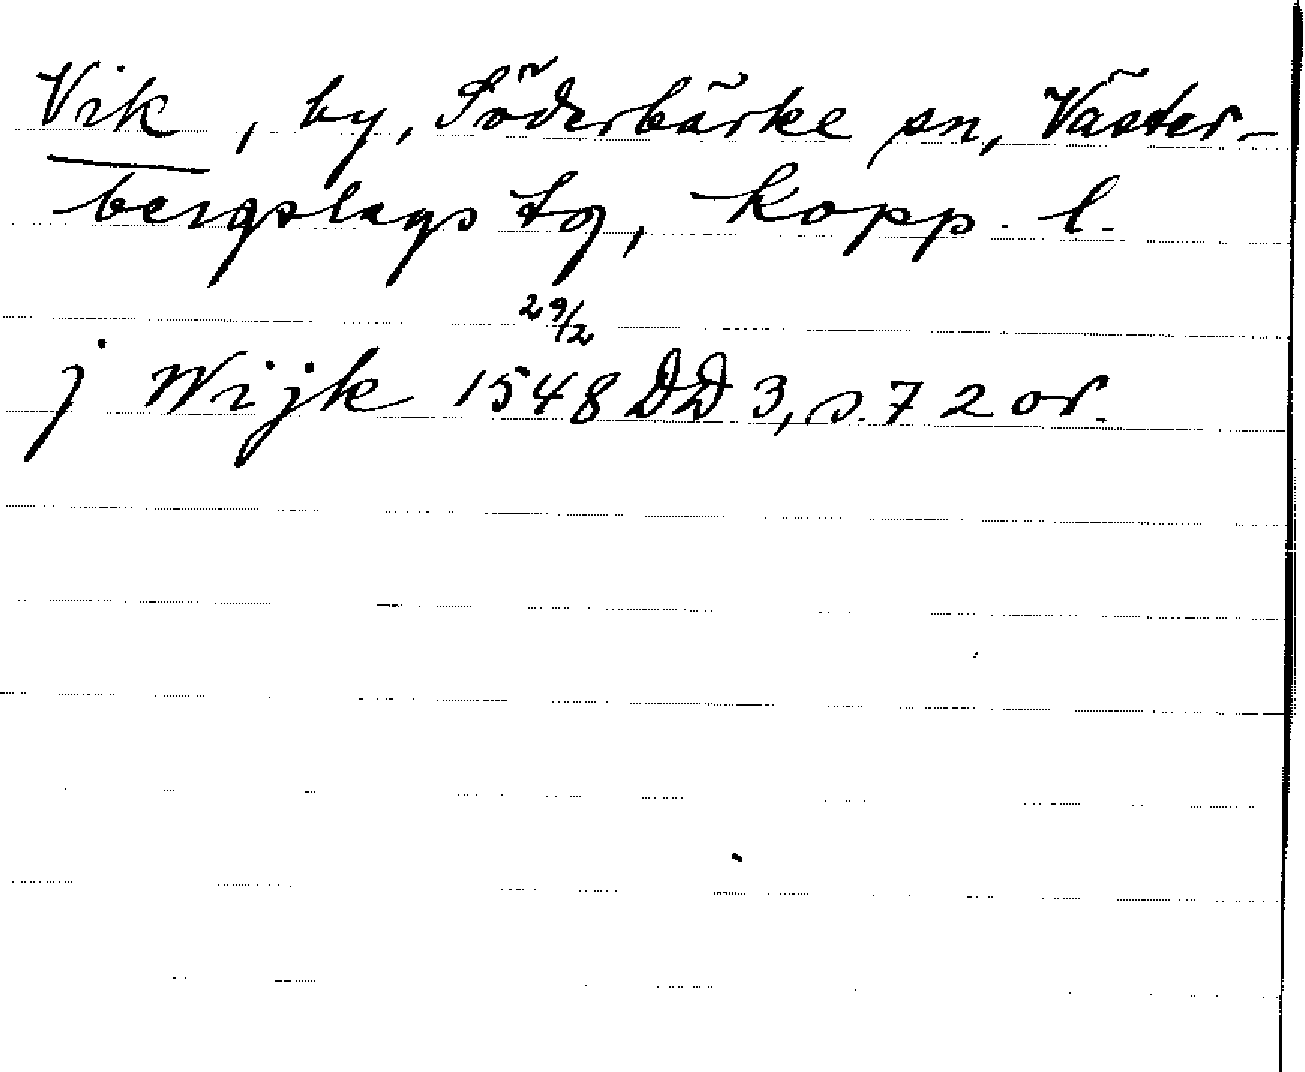 Vik, by, Söderbärke sn, Väster-
bergslags tg, Kopp. l.
29/2
j Wijk 1548 DD 3, s. 72 or.